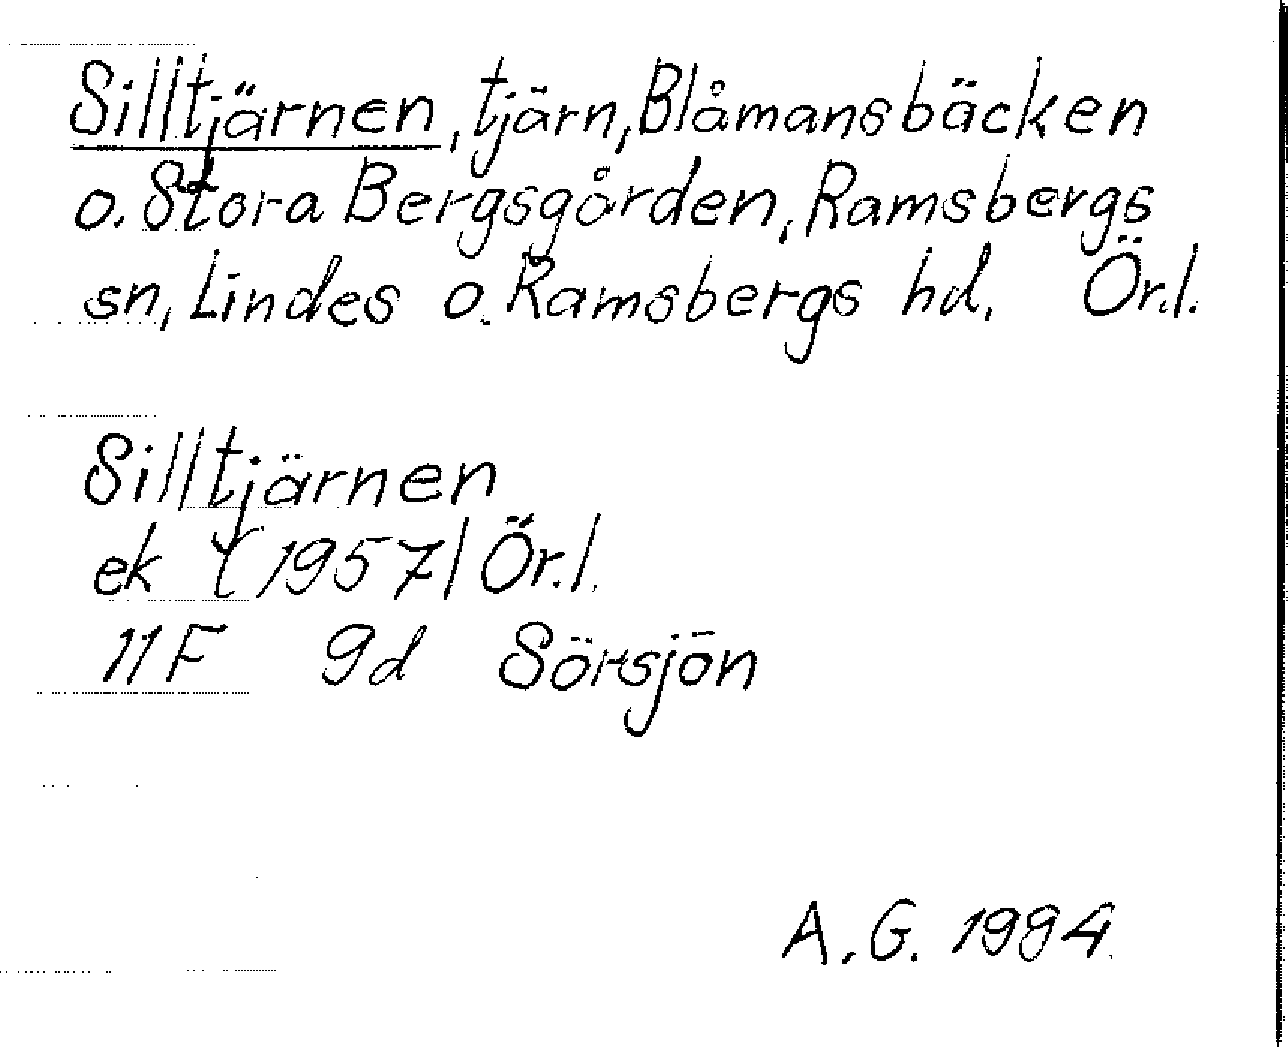 Silltjärnen, tjärn, Blåmansbäcken
o. Stora Bergsgården, Ramsbergs
sn, Lindes o. Ramsbergs hd. Ör.l.
Silltjärnen
ek (1957) Ör.l.
11F 9d Sörsjön
A.G. 1984